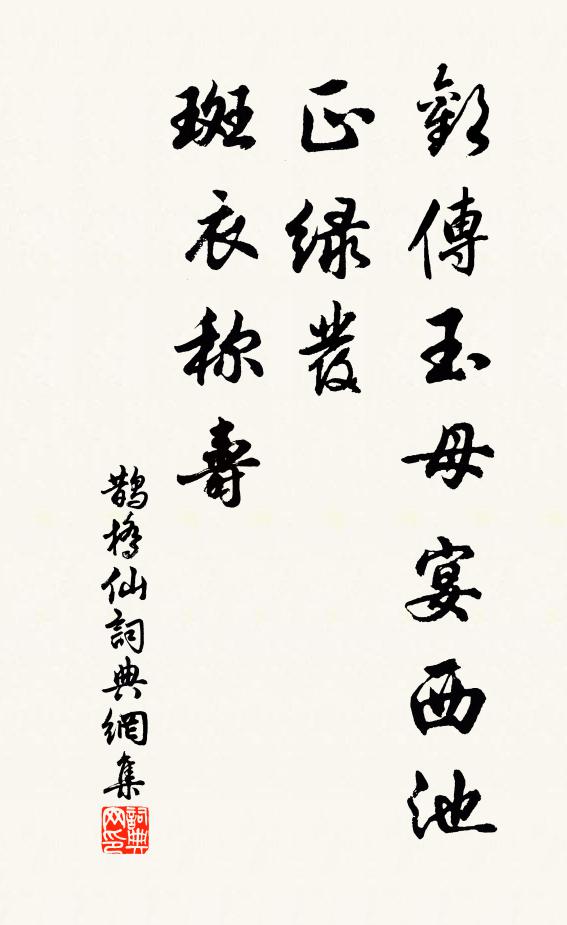 歡傳玉母宴西池
正緑發
斑衣称壽
鵲橋仙詞典網集
詞典
网印